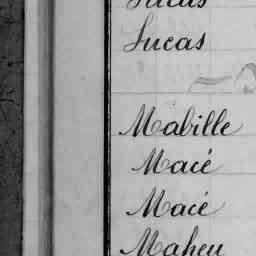 Lucas
Lucas
Mabille
Macé
Macé
Maheu